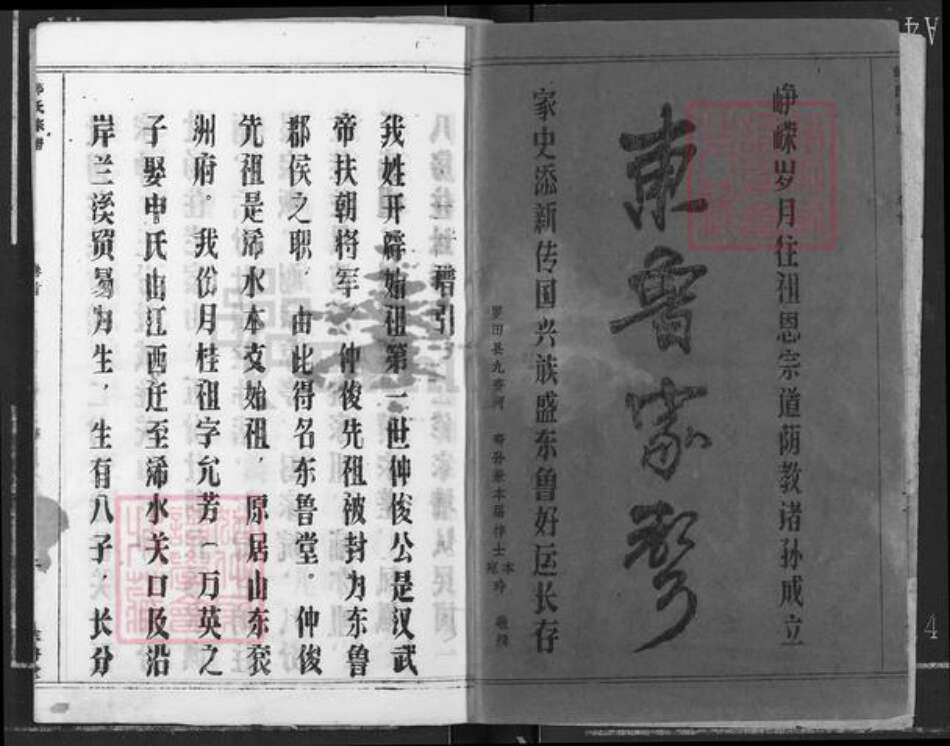 峥嵘岁月往祖恩宗道荫教诸孙成立
东鲁家声
家史添新传国兴族盛东鲁好运长存
罗田县九资河
谱引
我姓开辟始祖第一世仲俊公是汉武
帝扶朝将军，仲俊先祖被封为东鲁
郡侯之职，由此得名东鲁堂。仲俊
先祖是浠水本支始祖，原居山东兖
州府。我份月桂祖字允芳（万英之
子娶申氏由江西迁至浠水关口及沿
岸兰溪贸易为生，生有八子，长分
A4
4